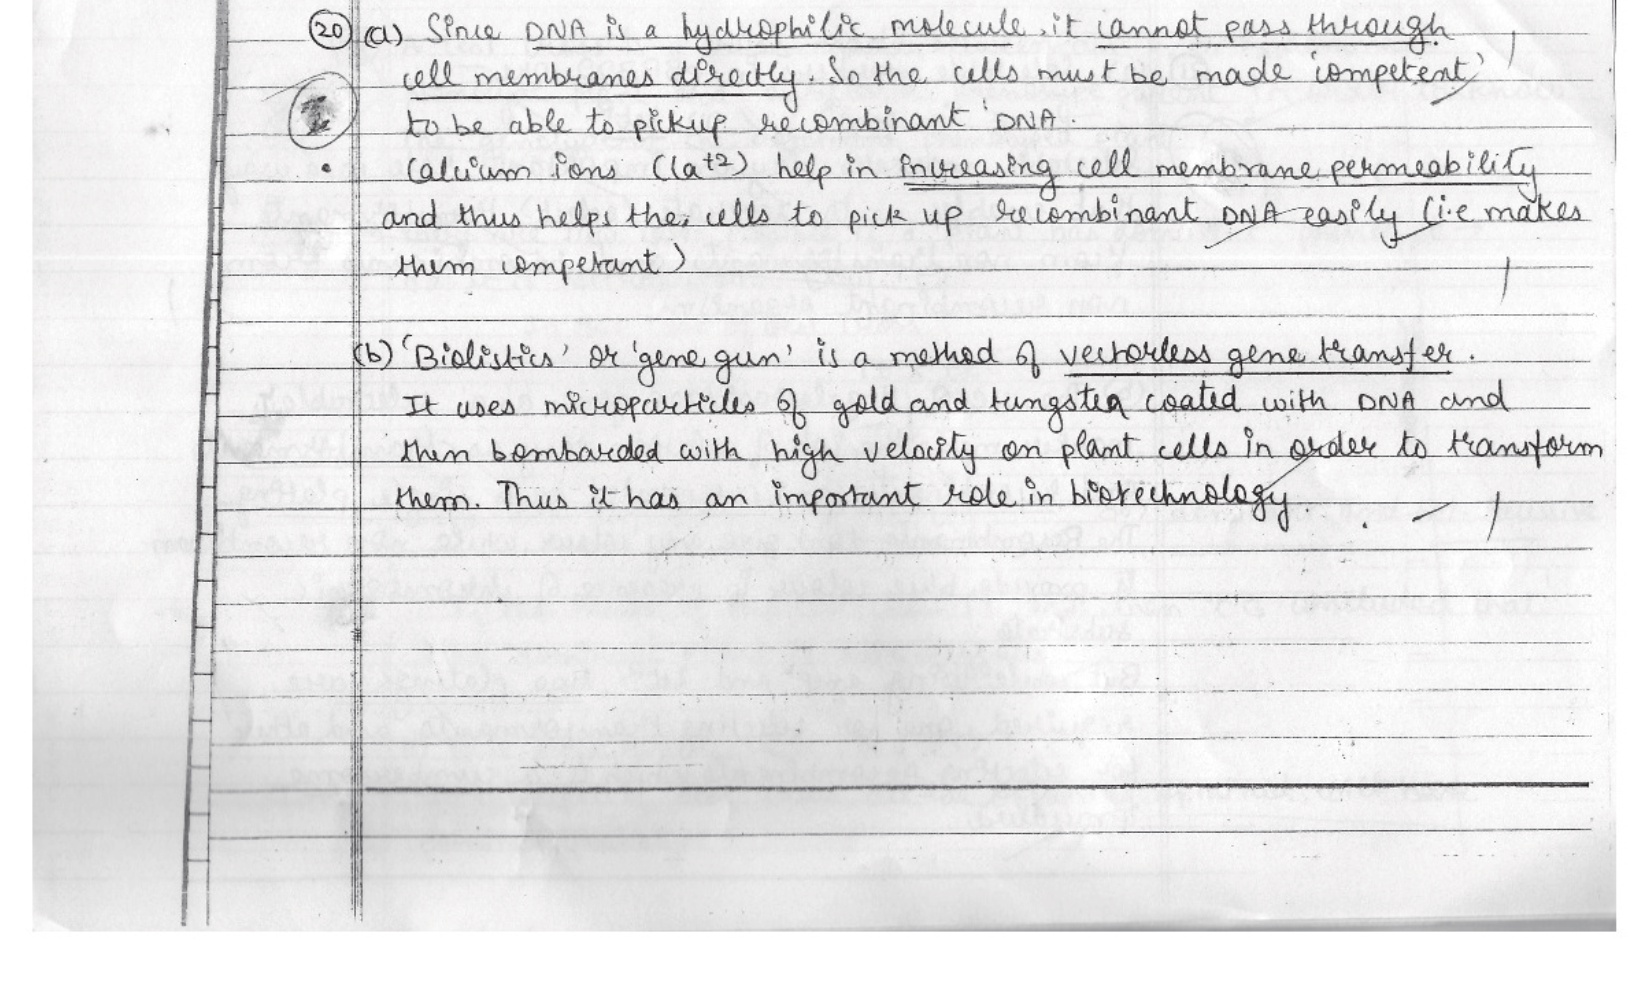 20 (a) Since DNA is a hydrophilic molecule, it cannot pass through
cell membranes directly. So the cells must be made 'competent'
to be able to pickup recombinant DNA.
• Calcium ions (Ca+2) help in increasing cell membrane permeability
and thus helps the cells to pick up recombinant DNA easily (i.e makes
them competant)
(b) 'Biolistics' or 'gene gun' is a method of vectorless gene transfer.
It uses microparticles of gold and tungsten coated with DNA and
then bombarded with high velocity on plant cells in order to transform
them. Thus it has an important role in biotechnology